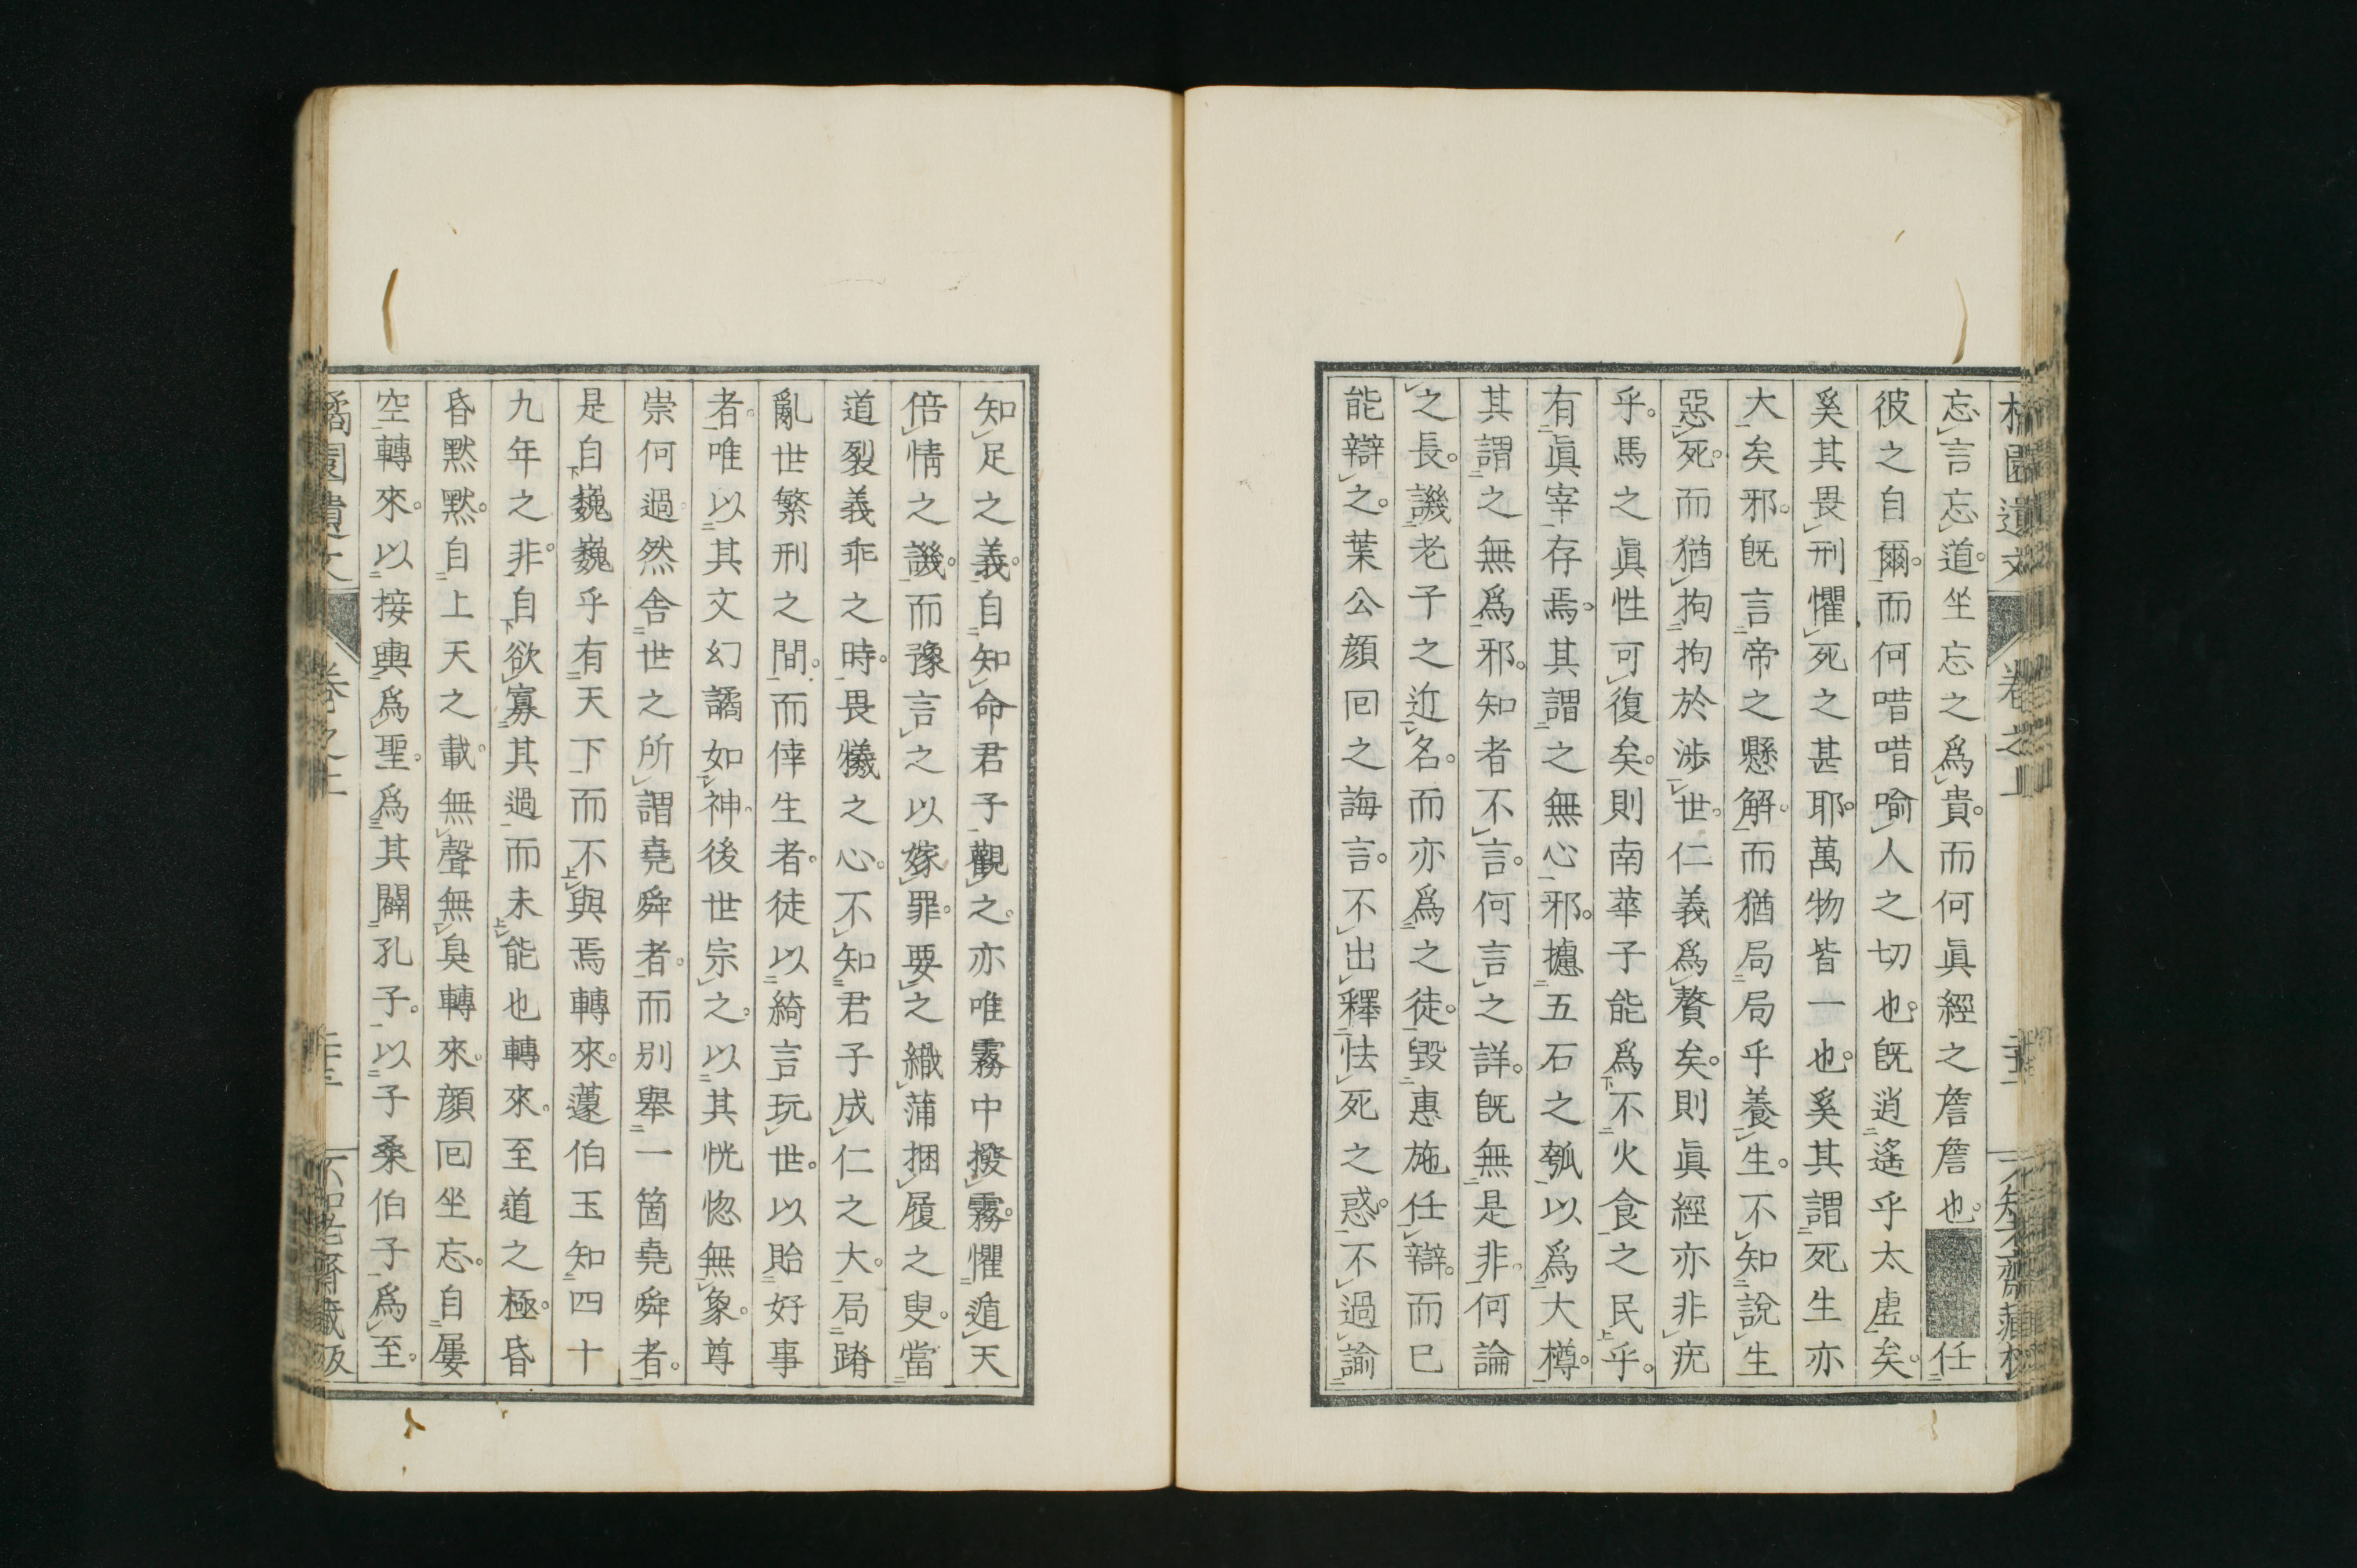 忘言忘道。坐忘之爲貴。而何眞經之詹詹也。任
彼之自爾。而何唶唶喻人之切也。旣逍遙乎太虛矣。
奚其畏刑懼死之甚耶。萬物皆一也。奚其謂死生亦
大矣邪。旣言帝之懸解。而猶局局乎養生。不知說生
惡死。而猶拘拘於涉世。仁義爲贅矣。則眞經亦非疣
乎。馬之眞性可復矣。則南華子能爲不火食之民乎。
有眞宰存焉。其謂之無心邪。攄五石之瓠以爲大樽。
其謂之無爲邪。知者不言。何言之詳。旣無是非。何論
之長。譏老子之近名。而亦爲之徒。毀惠施任辯。而已
能辯之。葉公顔回之誨言。不出釋怯死之惑。不過諭
知足之義。自知命君子觀之。亦唯霧中撥霧。懼遁天
倍情之譏。而豫言之以嫁罪。要之織蒲捆履之叟。當
道裂義乖之時。畏犧之心。不知君子成仁之大。局蹐
亂世繁刑之間。而倖生者。徒以綺言玩世。以貽好事
者。唯以其文幻譎如神。後世宗之。以其恍惚無象。尊
崇何過。然舍世之所謂堯舜者。而别舉一箇堯舜者。
是自巍巍乎有天下而不與焉轉來。蘧伯玉知四十
九年之非。自欲寡其過而未能也轉來。至道之極。昏
昏黙黙。自上天之載。無聲無臭轉來。顔回坐忘。自屢
空轉來。以接輿爲聖。爲其闢孔子。以子桑伯子爲至。
橘園遺文 卷之上